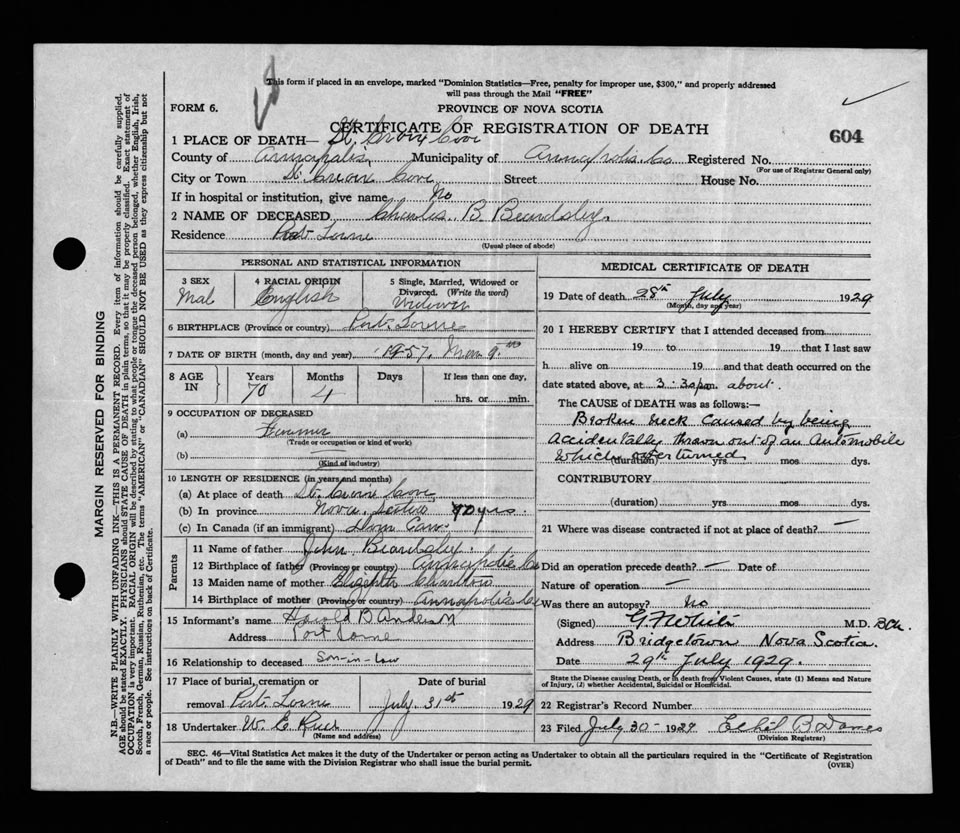 This form if placed in an envelope, marked "Dominion Statistics—Free, penalty for improper use, $300," and properly addressed
will pass through the Mail "FREE"
FORM 6.
PROVINCE OF NOVA SCOTIA
CERTIFICATE OF REGISTRATION OF DEATH
604
1 PLACE OF DEATH— St. Croix Cove
County of Annapolis Municipality of Annapolis Co Registered No.
(For use of Registrar General only)
City or Town St. Croix Cove Street House No.
If in hospital or institution, give name No
2 NAME OF DECEASED Charles B. Beardsley.
Residence Port Lorne
(Usual place of abode)
PERSONAL AND STATISTICAL INFORMATION
3 SEX
Mal
4 RACIAL ORIGIN
English
5 Single, Married, Widowed or
Divorced. (Write the word)
Widower
6 BIRTHPLACE (Province or country) Port Lorne
7 DATE OF BIRTH (month, day and year) 1957. 9th
8 AGE IN
Years Months Days If less than one day,
70 4 hrs. or min.
9 OCCUPATION OF DECEASED
(a) Farmer
(Trade or occupation or kind of work)
(b)
(Kind of industry)
10 LENGTH OF RESIDENCE (in years and months)
(a) At place of death St. Croix Cove
(b) In province Nova Scotia 70 yrs
(c) In Canada (if an immigrant) Dom Can
Parents
11 Name of father John Beardsley.
12 Birthplace of father (Province or country) Annapolis Co
13 Maiden name of mother Elizebth Charlton
14 Birthplace of mother (Province or country) Annapolis Co
15 Informant's name Harold B Anderson
Address Port Lorne
16 Relationship to deceased Son-in-law
17 Place of burial, cremation or Date of burial
removal Port Lorne July 31st 1929
18 Undertaker W. E.
(Name and address)
MEDICAL CERTIFICATE OF DEATH
19 Date of death 28th July 1929
(Month, day and year)
20 I HEREBY CERTIFY that I attended deceased from
19 to 19 that I last saw
h alive on 19 and that death occurred on the
date stated above, at 3.30 pm about.
The CAUSE of DEATH was as follows:—
Broken neck caused by being
accidentally thrown out of an Automobile
which overturned
(duration) yrs mos dys.
CONTRIBUTORY
(duration) yrs mos dys.
21 Where was disease contracted if not at place of death? —
Did an operation precede death? — Date of
Nature of operation —
Was there an autopsy? no
(Signed) G. F. White M.D. BCh.
Address Bridgetown Nova Scotia.
Date 29th July 1929.
State the Disease causing Death, or in death from Violent Causes, state (1) Means and Nature
of Injury, (2) whether Accidental, Suicidal or Homicidal.
22 Registrar's Record Number
23 Filed July 30 1929
(Division Registrar)
SEC. 46—Vital Statistics Act makes it the duty of the Undertaker or person acting as Undertaker to obtain all the particulars required in the "Certificate of Registration
of Death" and to file the same with the Division Registrar who shall issue the burial permit.
(OVER)
MARGIN RESERVED FOR BINDING
N.B.—WRITE PLAINLY WITH UNFADING INK—THIS IS A PERMANENT RECORD. Every item of information should be carefully supplied.
AGE should be stated EXACTLY. PHYSICIANS should STATE CAUSE OF DEATH in plain terms, so that it may be properly classified. Exact statement of
OCCUPATION is very important. RACIAL ORIGIN will be described by stating to what people or tongue the deceased person belonged, whether English, Irish,
Scotch, French, German, Russian, Ruthenian, etc. The terms "AMERICAN" or "CANADIAN" SHOULD NOT BE USED as they express citizenship but not
a race or people. See instructions on back of Certificate.